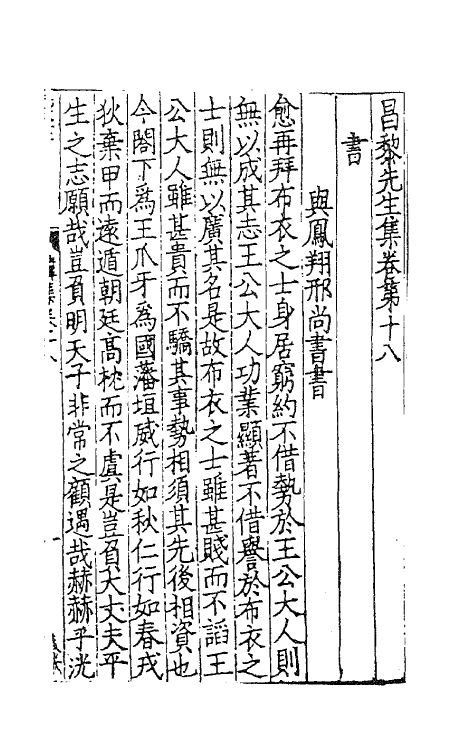 昌黎先生集卷第十八
書
與鳳翔邢尚書書
愈再拜布衣之士身居窮約不借勢於王公大人則
無以成其志王公大人功業顯著不借譽於布衣之
士則無以廣其名是故布衣之士雖甚賤而不諂王
公大人雖甚貴而不驕其事勢相須其先後相資也
今閤下爲王爪牙爲國藩垣威行如秋仁行如春戎
狄棄甲而遠遁朝廷高枕而不虞是豈負大丈夫平
生之志願哉豈負明天子非常之顧遇哉赫赫乎洸